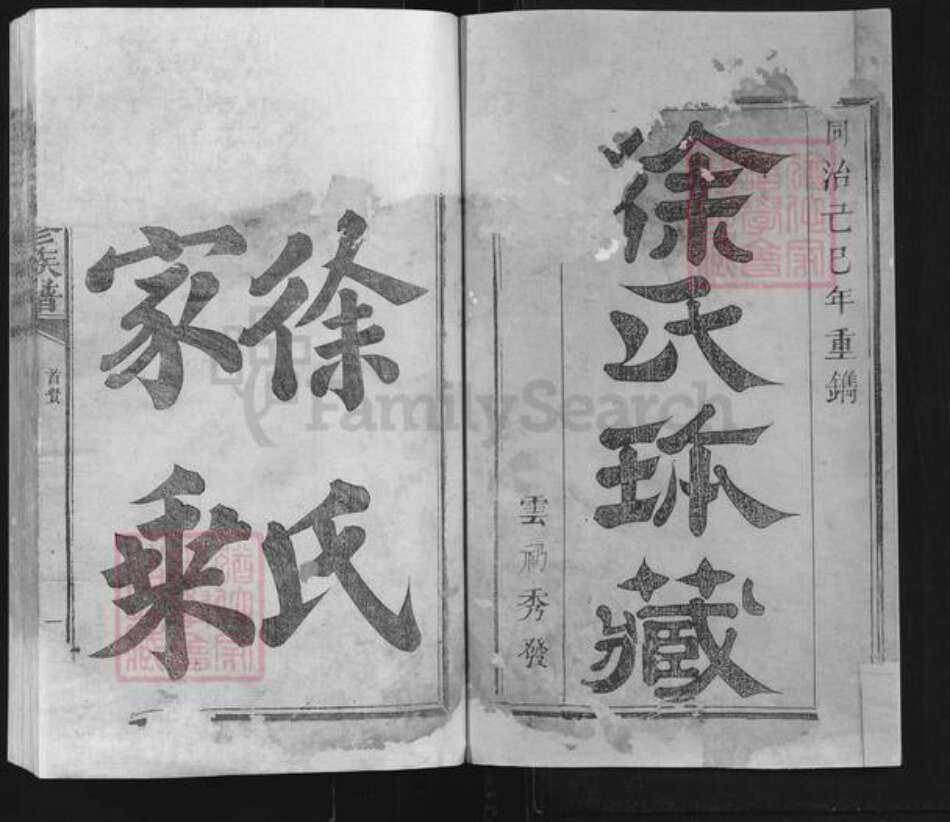 同治己巳年重鐫
徐氏珎藏
雲礽秀發
徐氏
家乘
族譜
首叅
一
FamilySearch